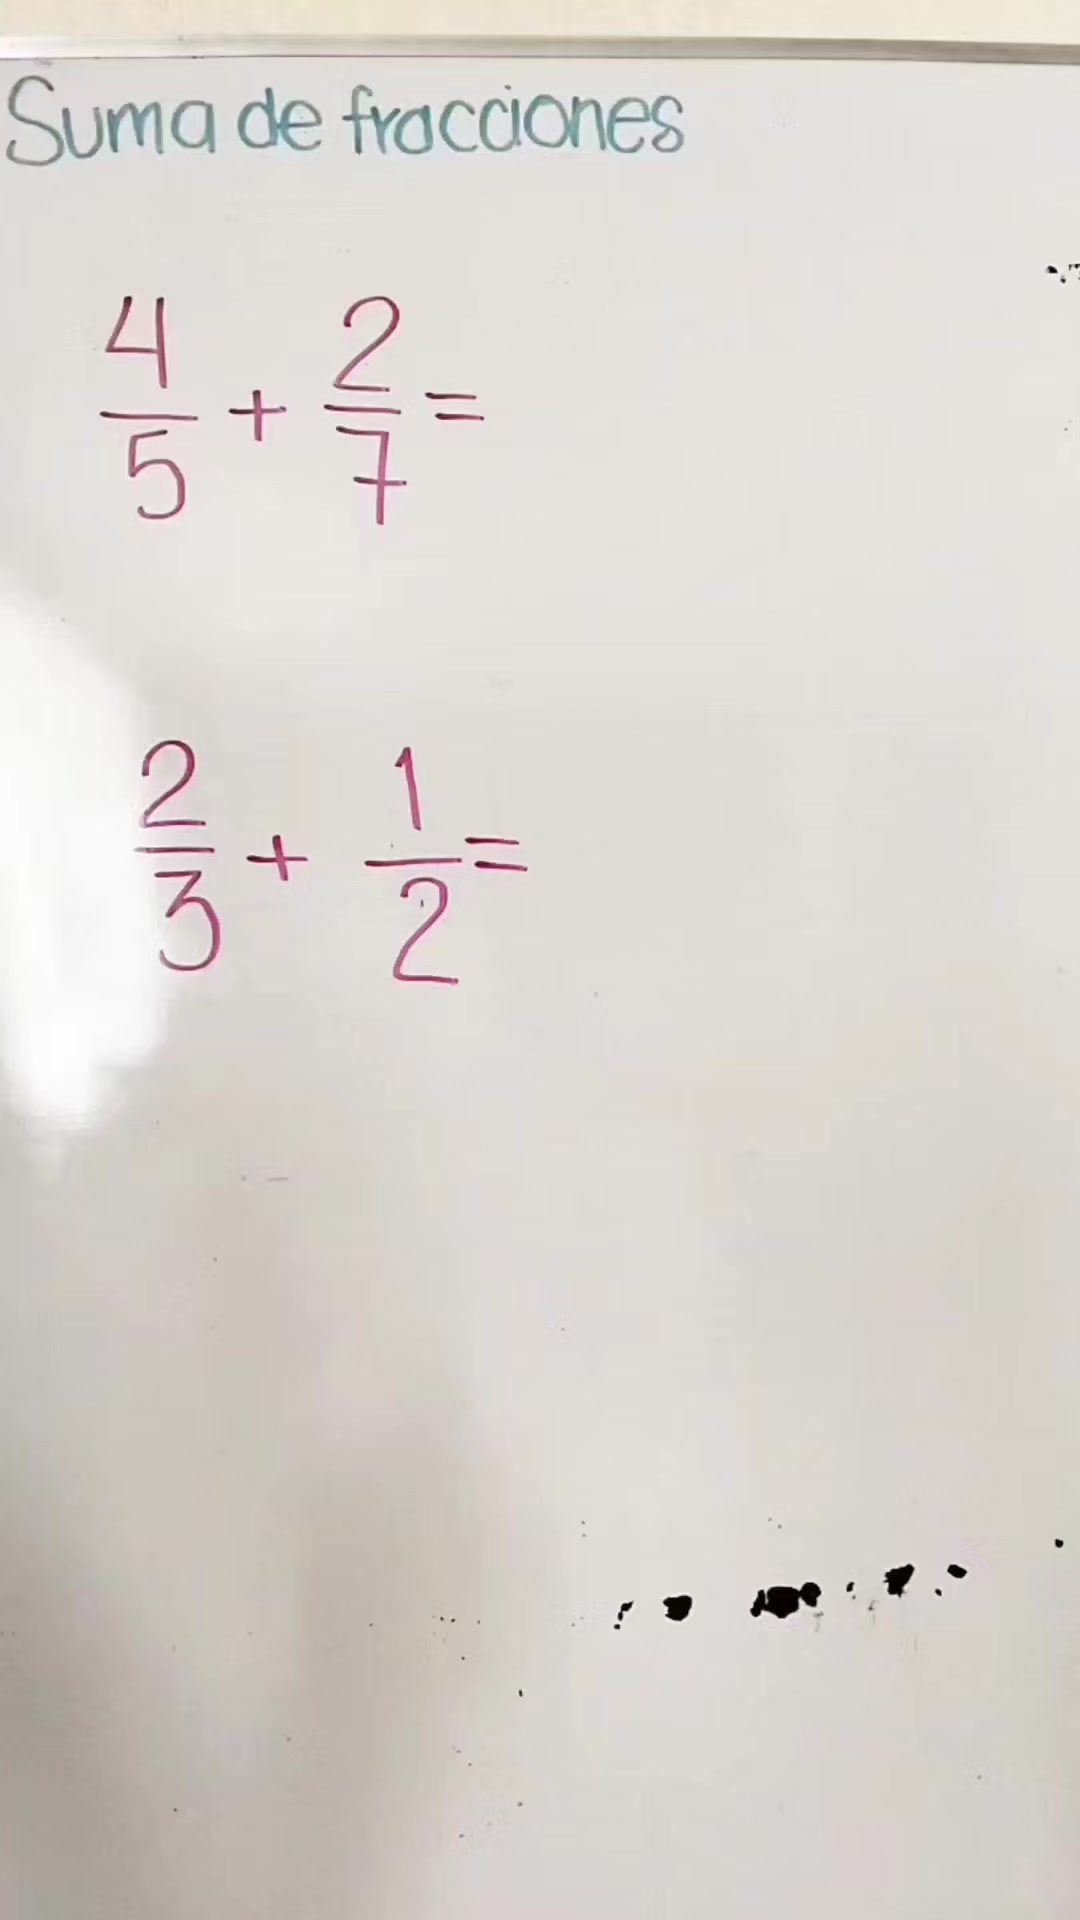 Suma de fracciones
4/5 + 2/7 =
2/3 + 1/2 =